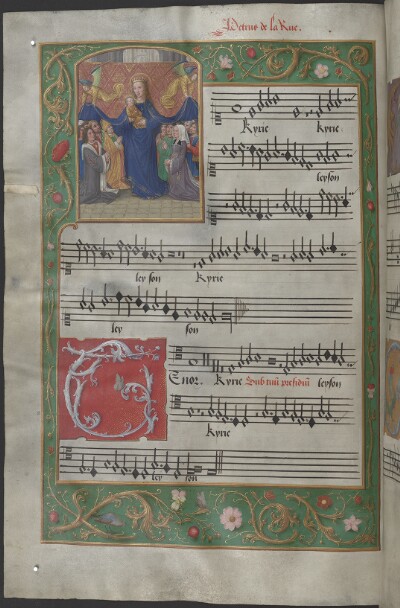 Petrus de la Rue.
Kyrie Kyrie
leyson
ley son Kyrie
ley son
Tenor. Kyrie Sub tuum presidium leyson
Kyrie
ley son